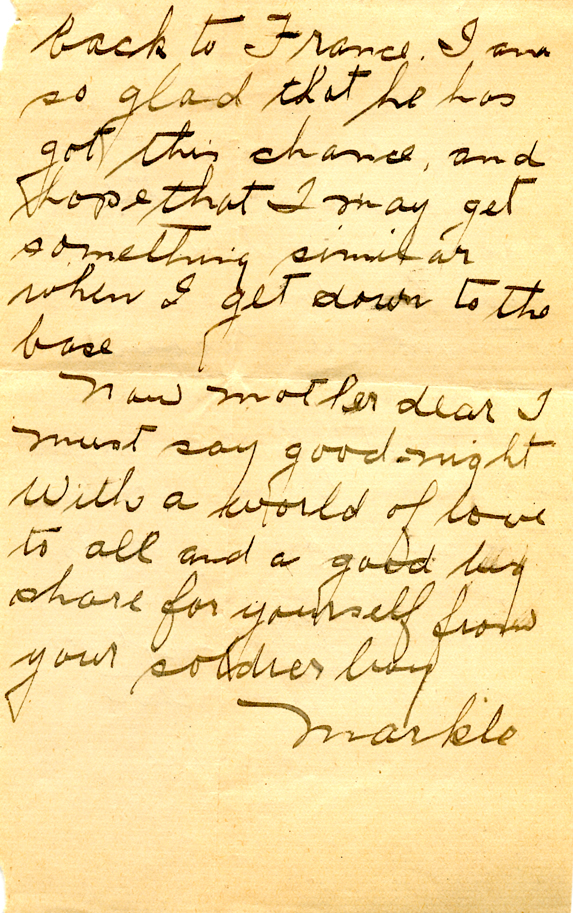 back to France. I am
so glad that he has
got this chance, and
hope that I may get
something similar
when I get down to the
base
Now mother dear I
must say good-night
With a world of love
to all and a good big
share for yourself from
your soldier boy
Markle